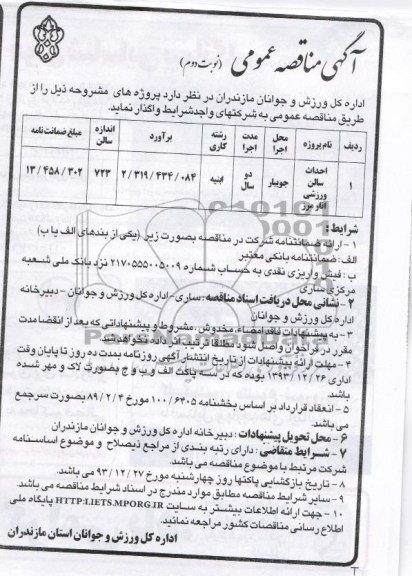 آگهی مناقصه عمومی (نوبت دوم)
اداره کل ورزش و جوانان مازندران در نظر دارد پروژه های مشروحه ذیل را از
طریق مناقصه عمومی به شرکتهای واجدشرایط واگذار نماید.
ردیف نام پروژه محل اجرا مدت اجرا رشته کاری برآورد اندازه مبلغ ضمانت نامه
۱ احداث سالن ورزشی انارمرز جویبار دو سال ابنیه ۲/۳۱۹/۴۳۴/۰۸۴ ۷۲۳ ۱۳/۴۵۸/۳۰۲
شرایط :
۱ - ارائه ضمانتنامه شرکت در مناقصه بصورت زیر: (یکی از بندهای الف یا ب)
الف : ضمانتنامه بانکی معتبر
ب : فیش واریزی نقدی به حساب شماره ۲۱۷۰۵۵۵۰۰۵۰۰۹ نزد بانک ملی شعبه
مرکزی ساری
۲ - نشانی محل دریافت اسناد مناقصه : ساری - اداره کل ورزش و جوانان - دبیرخانه
اداره کل ورزش و جوانان
۳ - به پیشنهادات فاقد امضاء، مخدوش، مشروط و پیشنهاداتی که بعد از انقضا مدت
مقرر در فراخوان واصل شود مطلقا ترتیب اثر داده نخواهد شد.
۴ - مهلت ارائه پیشنهادات از تاریخ انتشار آگهی روزنامه بمدت ده روز تا پایان وقت
اداری ۱۳۹۳/۱۲/۲۶ بوده که در سه پاکت الف و ب و ج بصورت لاک و مهر شده
می باشد.
۵ - انعقاد قرارداد بر اساس بخشنامه ۱۰۰/۶۴۰۵ مورخ ۸۹/۲/۴ بصورت سرجمع
می باشد.
۶ - محل تحویل پیشنهادات : دبیرخانه اداره کل ورزش و جوانان مازندران
۷ - شرایط متقاضی : دارای رتبه بندی از مراجع ذیصلاح و موضوع اساسنامه
شرکت مرتبط با موضوع مناقصه می باشد.
۸ - تاریخ بازگشایی پاکتها روز چهارشنبه مورخ ۹۳/۱۲/۲۷ می باشد.
۹ - سایر شرایط مناقصه مطابق موارد مندرج در اسناد شرایط مناقصه می باشد.
۱۰ - جهت ارائه اطلاعات بیشتر به سایت HTTP:LIETS.MPORG.IR پایگاه ملی
اطلاع رسانی مناقصات کشور مراجعه نمائید.
اداره کل ورزش و جوانان استان مازندران